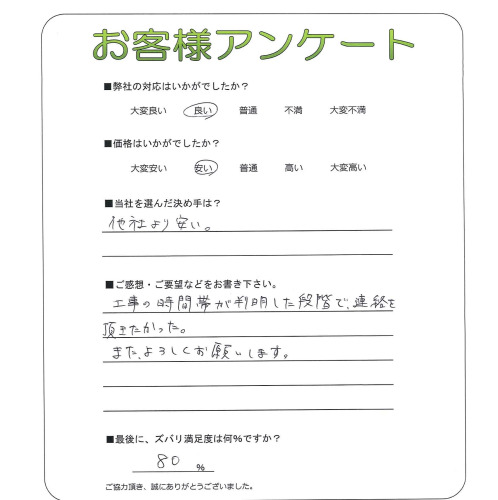 お客様アンケート
■弊社の対応はいかがでしたか？
大変良い 良い 普通 不満 大変不満
■価格はいかがでしたか？
大変安い 安い 普通 高い 大変高い
■当社を選んだ決め手は？
他社より安い。
■ご感想・ご要望などをお書き下さい。
工事の時間帯が判明した段階で、連絡を
頂きたかった。
また、よろしくお願いします。
■最後に、ズバリ満足度は何％ですか？
80 ％
ご協力頂き、誠にありがとうございました。